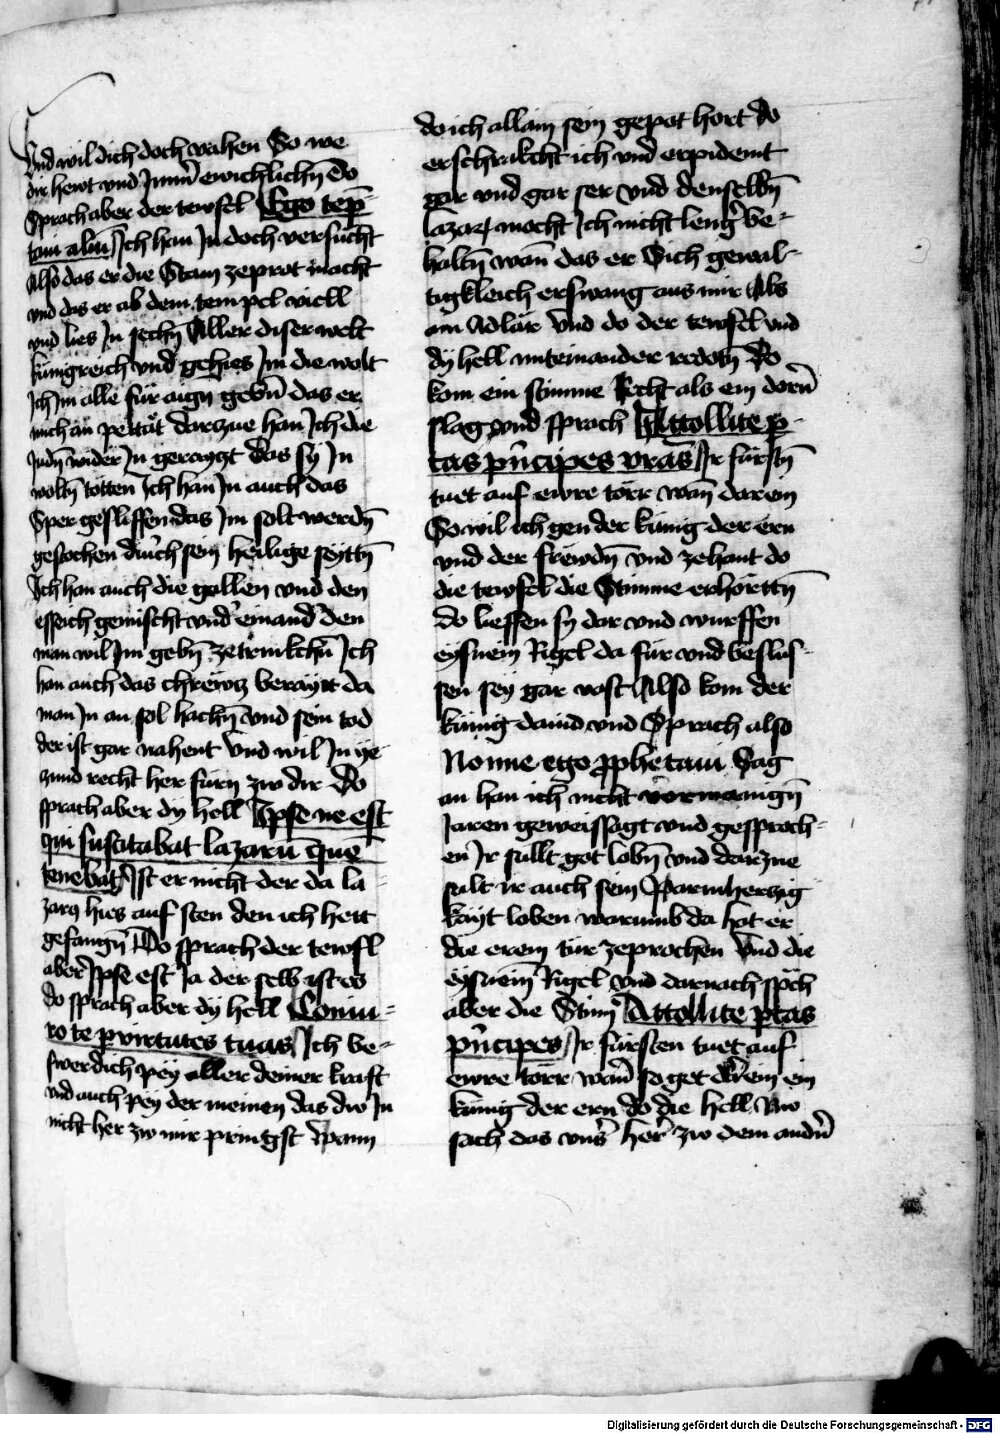 Vnd wil dich doch vahen So we
dir hewt vnd Jmm̄ ewichlichn̄ Do
Sprach aber der tewfel Ego tēp
taui alm̄ Ich han Jn doch versucht
Also das er die Stain zeprot macht
vnd das er ab dem tempel viell
vnd lies Jn sechn̄ Aller diser welt
kunigreich vnd gehies Jm die wolt
Ich Jm alle für aign gebn̄ das er
mich an pettät darzue han Ich die
Judn̄ wider Jn geraytzt Das sy Jn
woltn̄ tötten Ich han Jn auch das
Sper gesliffen das Jm solt werdn̄
gestochen durch sein heilige seyttn̄
Ich han auch die gallen vnd den
essich gemischt vnd' einand' den
man wil Jm gebn̄ zetrinkchn̄ Ich
han auch das chrewtz beraytt da
man Jn an sol hachn̄ vnd sein tod
der ist gar nahent Vnd wil Jn ye
zund recht her fürn zw dir Do
sprach aber dy hell Ipse ne est
qui suscitabat lazarū quē
tenebat Ist er nicht der da la-
zarū hies auf sten den ich hett
gefangn̄ Do sprach der tewfl
aber Jpse est Ja der selb ist es
do sprach aber dy hell Coniu-
ro te p virtutes tuas Ich be-
swer dich pey aller deiner kraft
vnd auch pey der meinen das dw Jn
nicht her zw mir prinngst Wann
do ich allain sein gepot hort do
erschrakcht ich vnd erpidemt
gar vnd gar ser vnd denselbn̄
lazarū mocht Ich nicht leng' be-
haltn̄ wan̄ das er Sich gewal-
tigkleich erswang aus mir Als
am Adlär Vnd do der tewfel vnd
dy hell miteinander redotn̄ Do
kom ein stimme Recht als ein dorn̄
slag vnd sprach Attollite p-
tas pn̄cipes vras̄ Ir fürstn̄
tuet auf ewre törr wan̄ darein
So wil ich gen der künig der ern
vnd der frewdn̄ vnd zehant do
die tewfel die Stimme erhörttn̄
do lieffen sy dar vnd wurffen
eysnein Rigel da für vnd beslus-
sen sey gar vast Also kom der
künig dauid vnd Sprach also
Nonne ego p̱phetaui Sag
an han ich nicht vor mangn̄
Jaren geweissagt vnd gesproch-
en Ir sullt got lobn̄ vnd darzue
sult ir auch sein Parmherzig
kayt loben warumb da hat er
die erein tür zeprochen Vnd die
eysnein Rigel vnd darnach sp̄ch
aber die Stim̄ Attollite ptas
pn̄cipes Ir fürsten tuet auf
ewre törr wan̄ so get darein ein
künig der ern do die hell Nw
sach das vns' her' zw dem andn̄